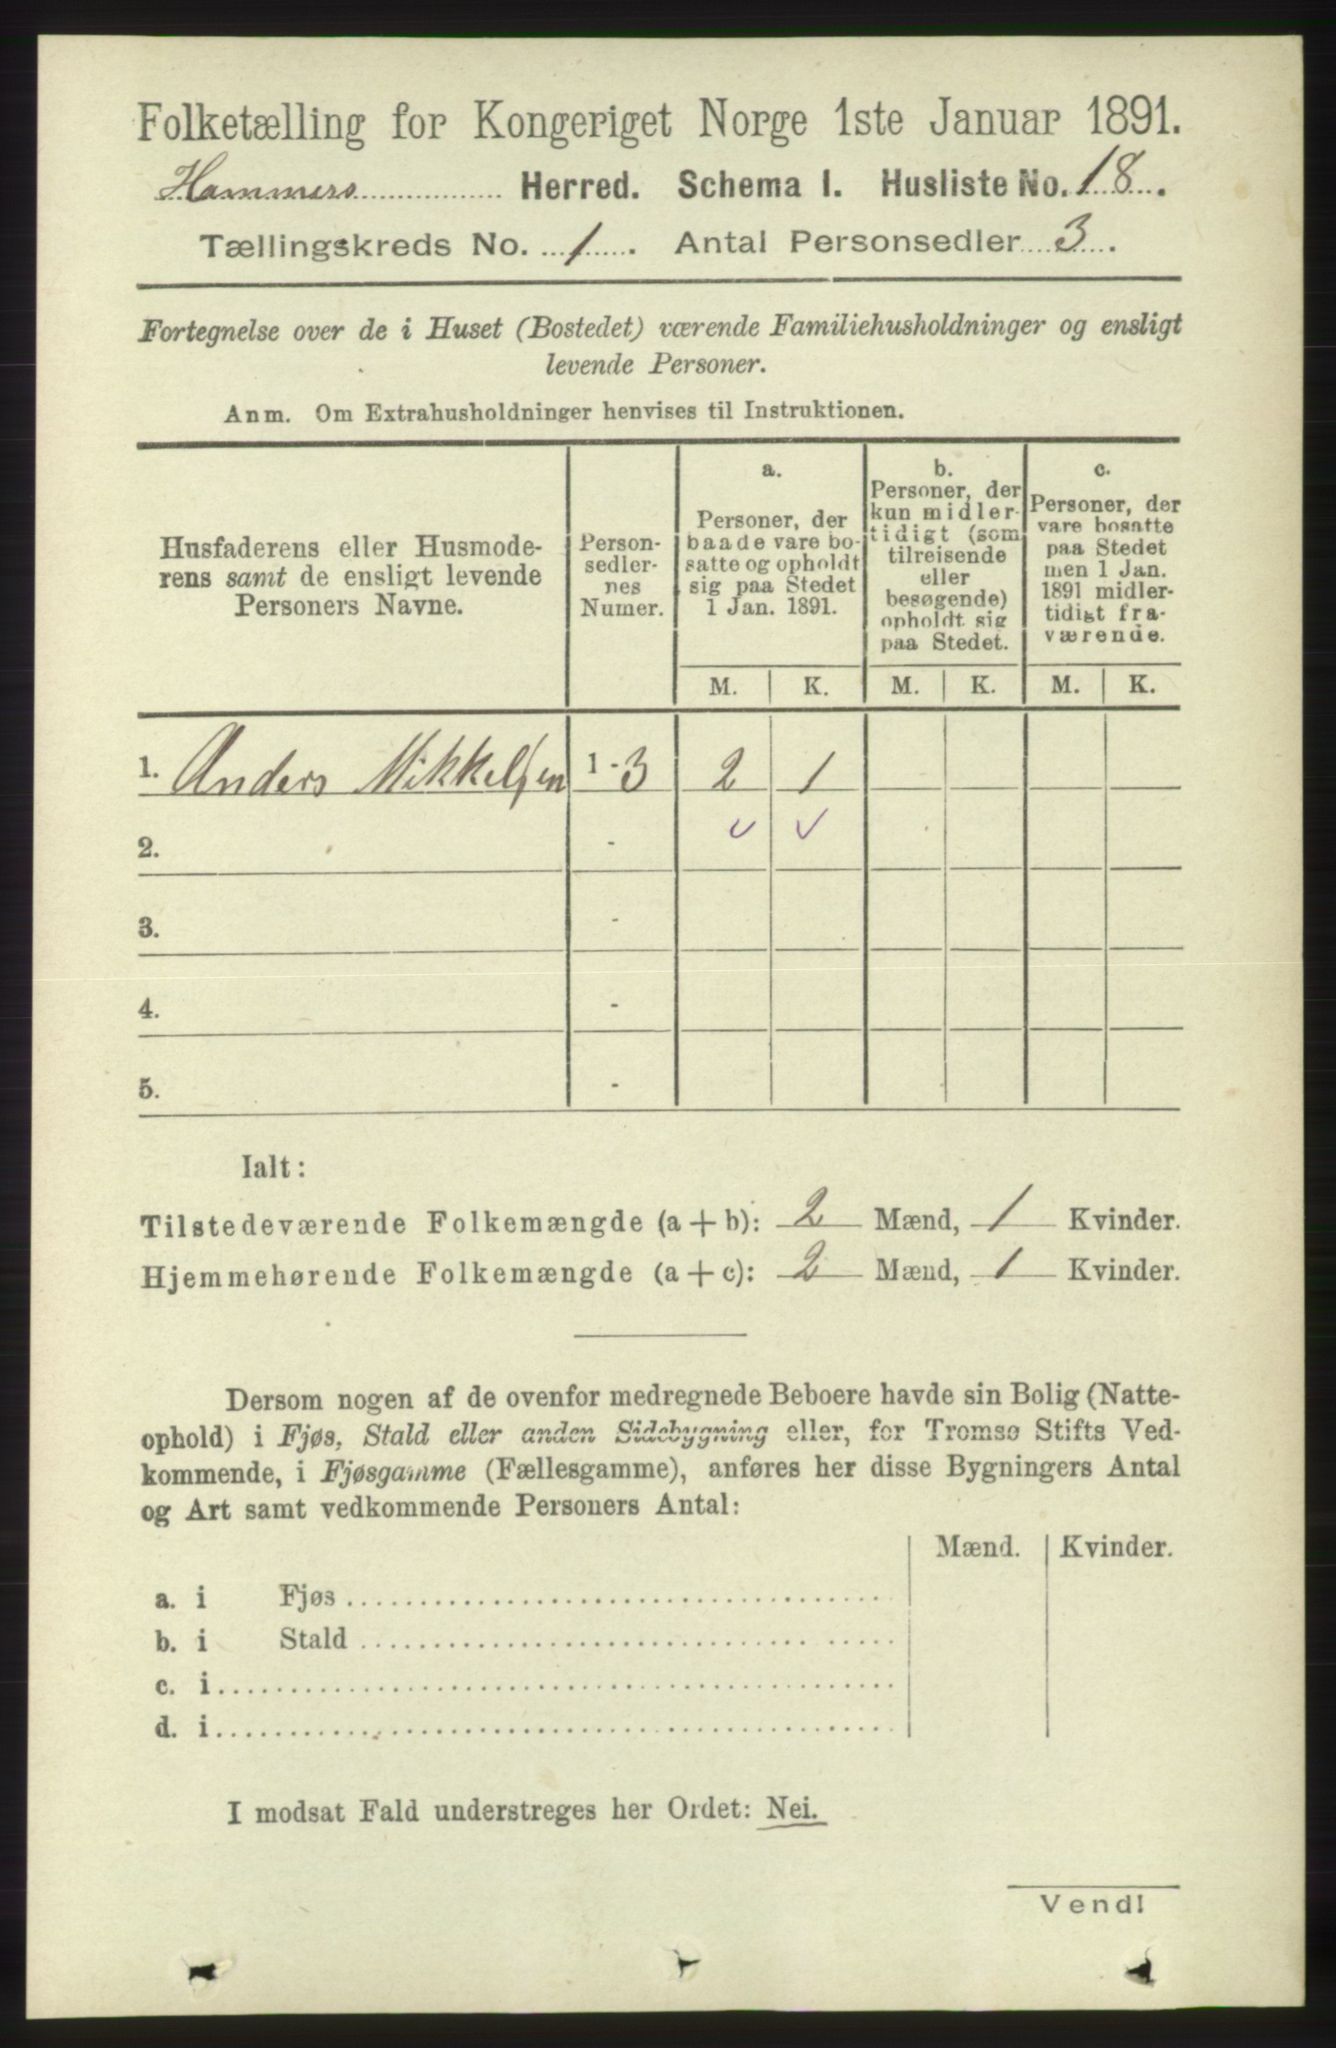 Folketælling for Kongeriget Norge 1ste Januar 1891.
Hammers Herred. Schema I. Husliste No. 18.
Tællingskreds No. 1. Antal Personsedler 3.
Fortegnelse over de i Huset (Bostedet) værende Familiehusholdninger og ensligt
levende Personer.
Anm. Om Extrahusholdninger henvises til Instruktionen.
Husfaderens eller Husmode-
rens samt de ensligt levende
Personers Navne.
Person-
sedler-
nes
Numer.
a.
Personer, der
baade vare bo-
satte og opholdt
sig paa Stedet
1 Jan. 1891.
b.
Personer, der
kun midler-
tidigt (som
tilreisende
eller
besøgende)
opholdt sig
paa Stedet.
c.
Personer, der
vare bosatte
paa Stedet
men 1 Jan.
1891 midler-
tidigt fra-
værende.
M. K. M. K. M. K.
1. Anders Mikkelsen 1 - 3 2 1
2. - v v
3. -
4. -
5. -
Ialt:
Tilstedeværende Folkemængde (a + b): 2 Mænd, 1 Kvinder.
Hjemmehørende Folkemængde (a + c): 2 Mænd, 1 Kvinder.
Dersom nogen af de ovenfor medregnede Beboere havde sin Bolig (Natte-
ophold) i Fjøs, Stald eller anden Sidebygning eller, for Tromsø Stifts Ved-
kommende, i Fjøsgamme (Fællesgamme), anføres her disse Bygningers Antal
og Art samt vedkommende Personers Antal:
Mænd. Kvinder.
a. i Fjøs
b. i Stald
c. i
d. i
I modsat Fald understreges her Ordet: Nei.
Vendl